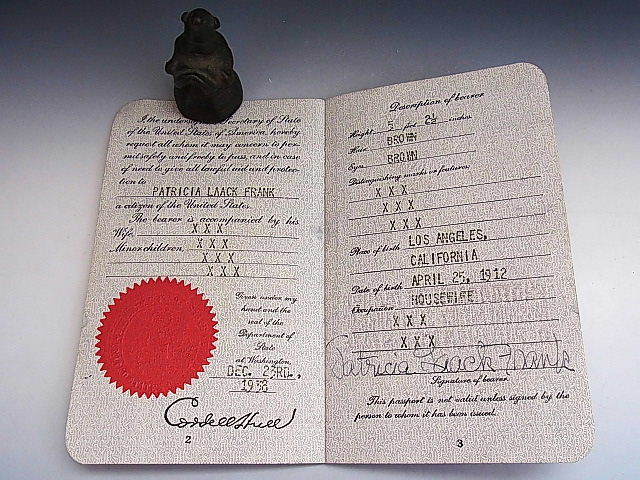 I the undersigned, Secretary of State
of the United States of America, hereby
request all whom it may concern to per-
mit safely and freely to pass, and in case
of need to give all lawful aid and protec-
tion to
PATRICIA LAACK FRANK
a citizen of the United States.
The bearer is accompanied by his
Wife, X X X
Minor children, X X X
X X X
X X X
Given under my
hand and the
seal of the
Department of
State
at Washington,
DEC. 23RD.,
1938
Cordell Hull
2
Description of bearer
Height 5 feet 2½ inches.
Hair BROWN
Eyes BROWN
Distinguishing marks or features:
X X X
X X X
X X X
Place of birth LOS ANGELES,
CALIFORNIA
Date of birth APRIL 25, 1912
Occupation HOUSEWIFE
X X X
X X X
Patricia Laack Frank
Signature of bearer.
This passport is not valid unless signed by the
person to whom it has been issued.
3